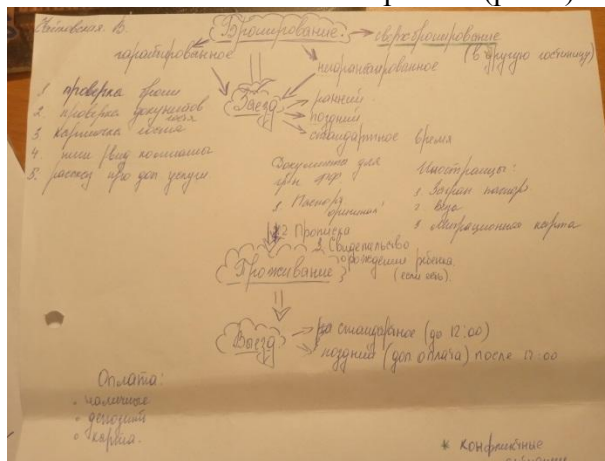 В.
Бронирование
сверхбронирование
(в другую гостиницу)
гарантированное
негарантированное
Заезд
ранний
поздний
стандартное время
1. проверка брони
2. проверка документов
гостя
3. карточка гостя
4.
5. рассказ про доп. услуги
Документы для
гр-н РФ
1. Паспорт
оригинал
2 Прописка
3 Свидетельство
о рождении ребенка
(если есть).
Иностранцы:
1. Загран паспорт
2 виза
3 Миграционная карта
Проживание
Выезд
стандартное (до 12:00)
поздний (доп оплата) после 12:00
Оплата:
наличные
депозит
карта.
* конфликтные